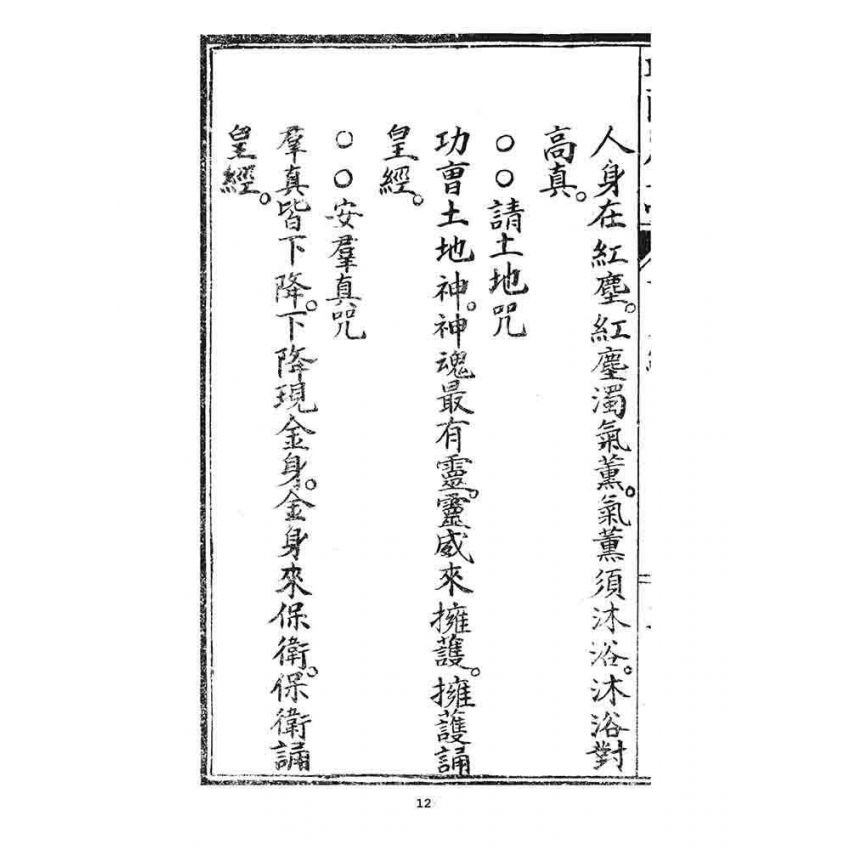 人身在紅塵。紅塵濁氣薰。氣薰須沐浴。沐浴對
高真。
○○請土地咒
功曹土地神。神魂最有靈。靈威來擁護。擁護誦
皇經。
○○安羣真咒
羣真皆下降。下降現金身。金身來保衛。保衛誦
皇經。
12